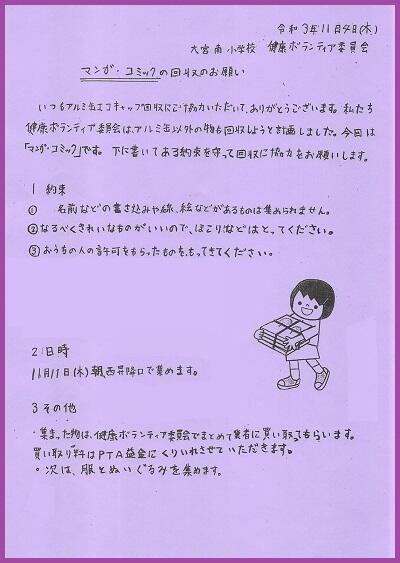 令和3年11月4日(木)
大宮南小学校 健康ボランティア委員会
マンガ・コミックの回収のお願い
いつもアルミ缶エコキャップ回収にご協力いただいて、ありがとうございます。私たち
健康ボランティア委員会は、アルミ缶以外の物も回収しようと計画しました。今回は
「マンガ・コミック」です。下に書いてある約束を守って回収に協力をお願いします。
1 約束
① 名前などの書き込みや線、絵などがあるものは集められません。
②なるべくきれいなものがいいので、ほこりなどはとってください。
③おうちの人の許可をもらったものを、もってきてください。
2 日時
11月11日(木)朝、西昇降口で集めます。
3 その他
・集まった物は、健康ボランティア委員会でまとめて業者に買い取ってもらいます。
買い取り料はPTA益金にくりいれさせていただきます。
・次は、服とぬいぐるみを集めます。